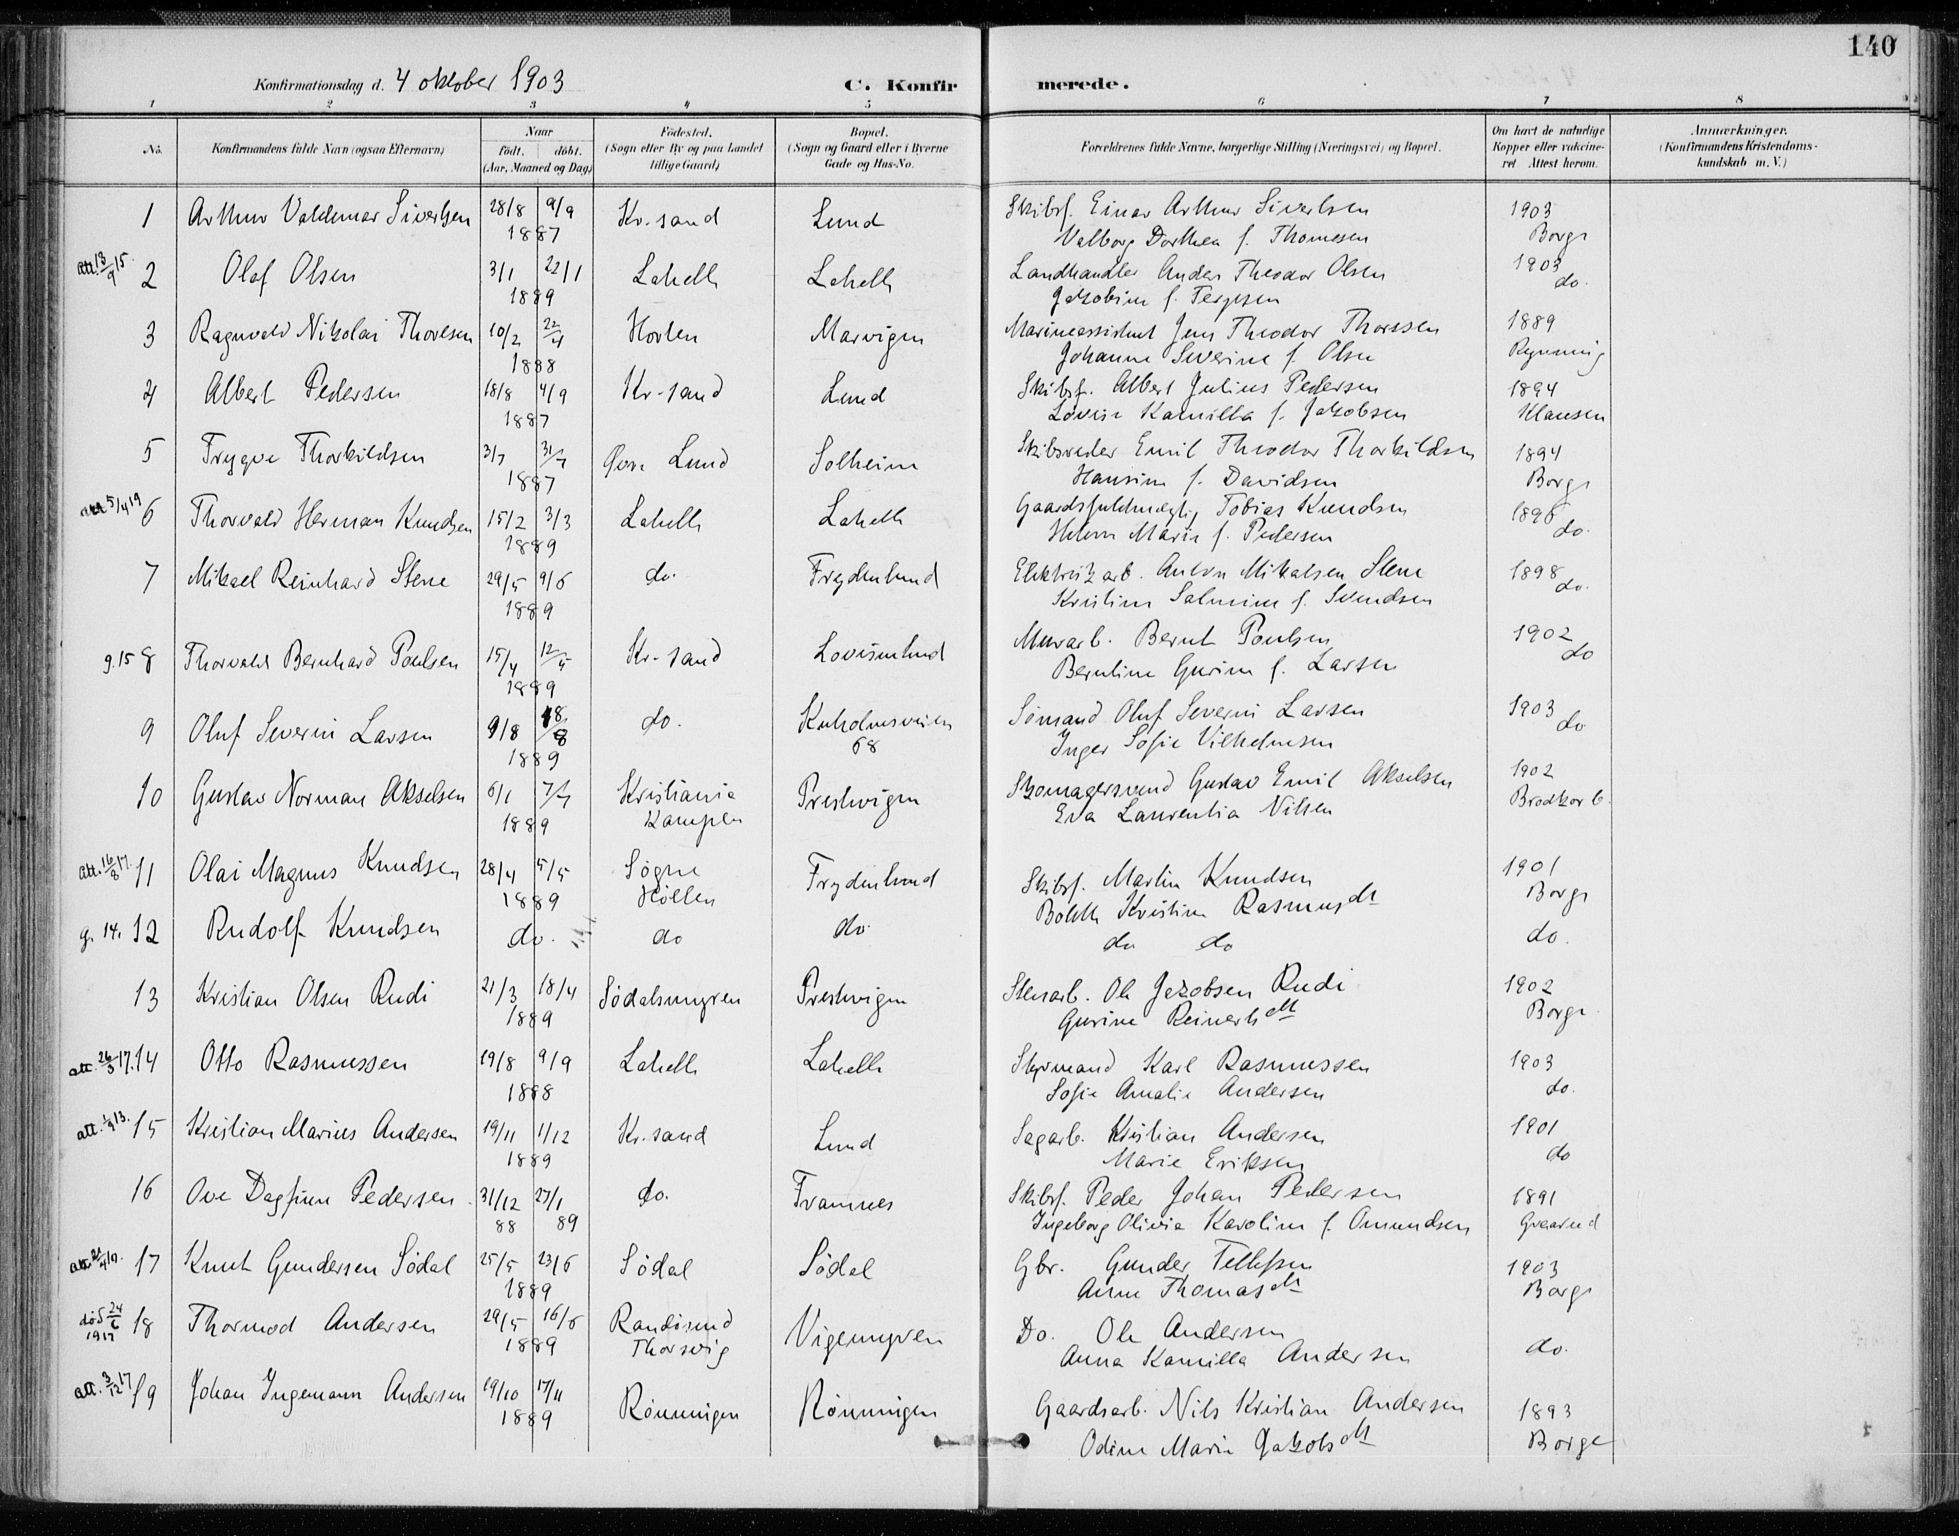 140
Konfirmationsdag d. 4 oktober 1903 C. Konfirmerede.
1 2 3 4 5 6 7 8
No. Konfirmandens fulde Navn (ogsaa Efternavn) Naar født. døbt. (Aar, Maaned og Dag) Fødested. (Sogn eller By og paa Landet tillige Gaard) Bopæl. (Sogn og Gaard eller i Byerne Gade og Hus-No. Forældrenes fulde Navne, borgerlige Stilling (Næringsvei) og Bopæl. Om havt de naturlige Kopper eller vakcineret Attest herom. Anmærkninger. (Konfirmandens Kristendomskundskab m. V.)
1 Arthur Valdemar Sivertsen 28/8 9/9 Kr.sand Lund Skibsf. Einar Arthur Sivertsen 1903
1887 Valborg Dorthea f. Thomesen Borge
att. 13/9 15. 2 Olaf Olsen 3/1 22/1 Lahelle Lahelle Landhandler Anders Theodor Olsen 1903
1889 Jakobine f. Terjesen do.
3 Ragnvald Nikolai Thoresen 10/2 22/4 Horten Marvigen Marineassistent Jens Theodor Thoresen 1889
1888 Johanne Severine f. Olsen
4 Albert Pedersen 18/8 4/9 Kr.sand Lund Skibsf. Albert Julius Pedersen 1894
1887 Lovise Kamilla f. Jakobsen Klausen
5 Trygve Thorkildsen 3/7 31/7 Øvre Lund Solheim Skibsreder Emil Theodor Thorkildsen 1894
1887 Hansine f. Davidsen Borge
att 5/4 19 6 Thorvald Herman Knudsen 15/2 3/3 Lahelle Lahelle Gaardsfuldmægtig Tobias Knudsen 1896
1889 Helene Marie f. Pedersen do.
7 Mikael Reinhard Stene 29/5 9/6 do. Frydenlund Elektriz. arb. Anton Mikalsen Stene 1898
1889 Kristine Salmine f. Svendsen do.
g. 15 8 Thorvald Bernhard Poulsen 15/4 12/5 Kr.sand Lovisenlund Murarb. Bernt Poulsen 1902
1889 Berntine Gurine f. Larsen do
9 Oluf Severin Larsen 9/8 18/8 do. Kuholmsveien Sømand Oluf Severin Larsen 1903
1889 68 Inger Sofie Vilhelmsen do
10 Gustav Norman Akselsen 6/1 7/7 Kristiania Prestvigen Skomagersvend Gustav Emil Akselsen 1902
1889 Kampen Eva Laurentia Nilsen Brodkorb.
att. 16/8 17. 11 Olai Magnus Knudsen 28/4 5/5 Søgne Frydenlund Skibsf. Martin Knudsen 1901
1889 Høllen Bolette Kristine Rasmusdt Borge
g. 14. 12 Rudolf Knudsen do. do do do do do.
13 Kristian Olsen Rudi 21/3 18/4 Sødalsmyren Prestvigen Stenarb. Ole Jakobsen Rudi 1902
1889 Gurine Reinertsdtt Borge
att. 26/3 17. 14 Otto Rasmussen 19/8 9/9 Lahelle Lahelle Styrmand Karl Rasmussen 1903
1888 Sofie Amalie Andersen do.
att. 1/9 13. 15 Kristian Marius Andersen 19/11 1/12 Kr.sand Lund Sagarb. Kristian Andersen 1901
1889 Marie Eriksen do
16 Ove Dagfinn Pedersen 31/12 27/1 do. Framnes Skibsf. Peder Johan Pedersen 1891
88 89 Ingeborg Olivia Karoline f. Omundsen
17 Knut Gundersen Sødal 25/5 23/6 Sødal Sødal Gbr. Gunder Tellefsen 1903
1889 Anne Thomasdtt Borge
død 24/6 1917 18 Thormod Andersen 29/5 16/6 Randøsund Vigemyren Do. Ole Andersen do.
1889 Thorsvig Anna Kamilla Andersen
att. 3/12 17 19 Johan Ingemann Andersen 19/10 17/11 Rønningen Rønningen Gaardsarb. Nils Kristian Andersen 1893
1889 Odine Marie Jakobsdtt Borge